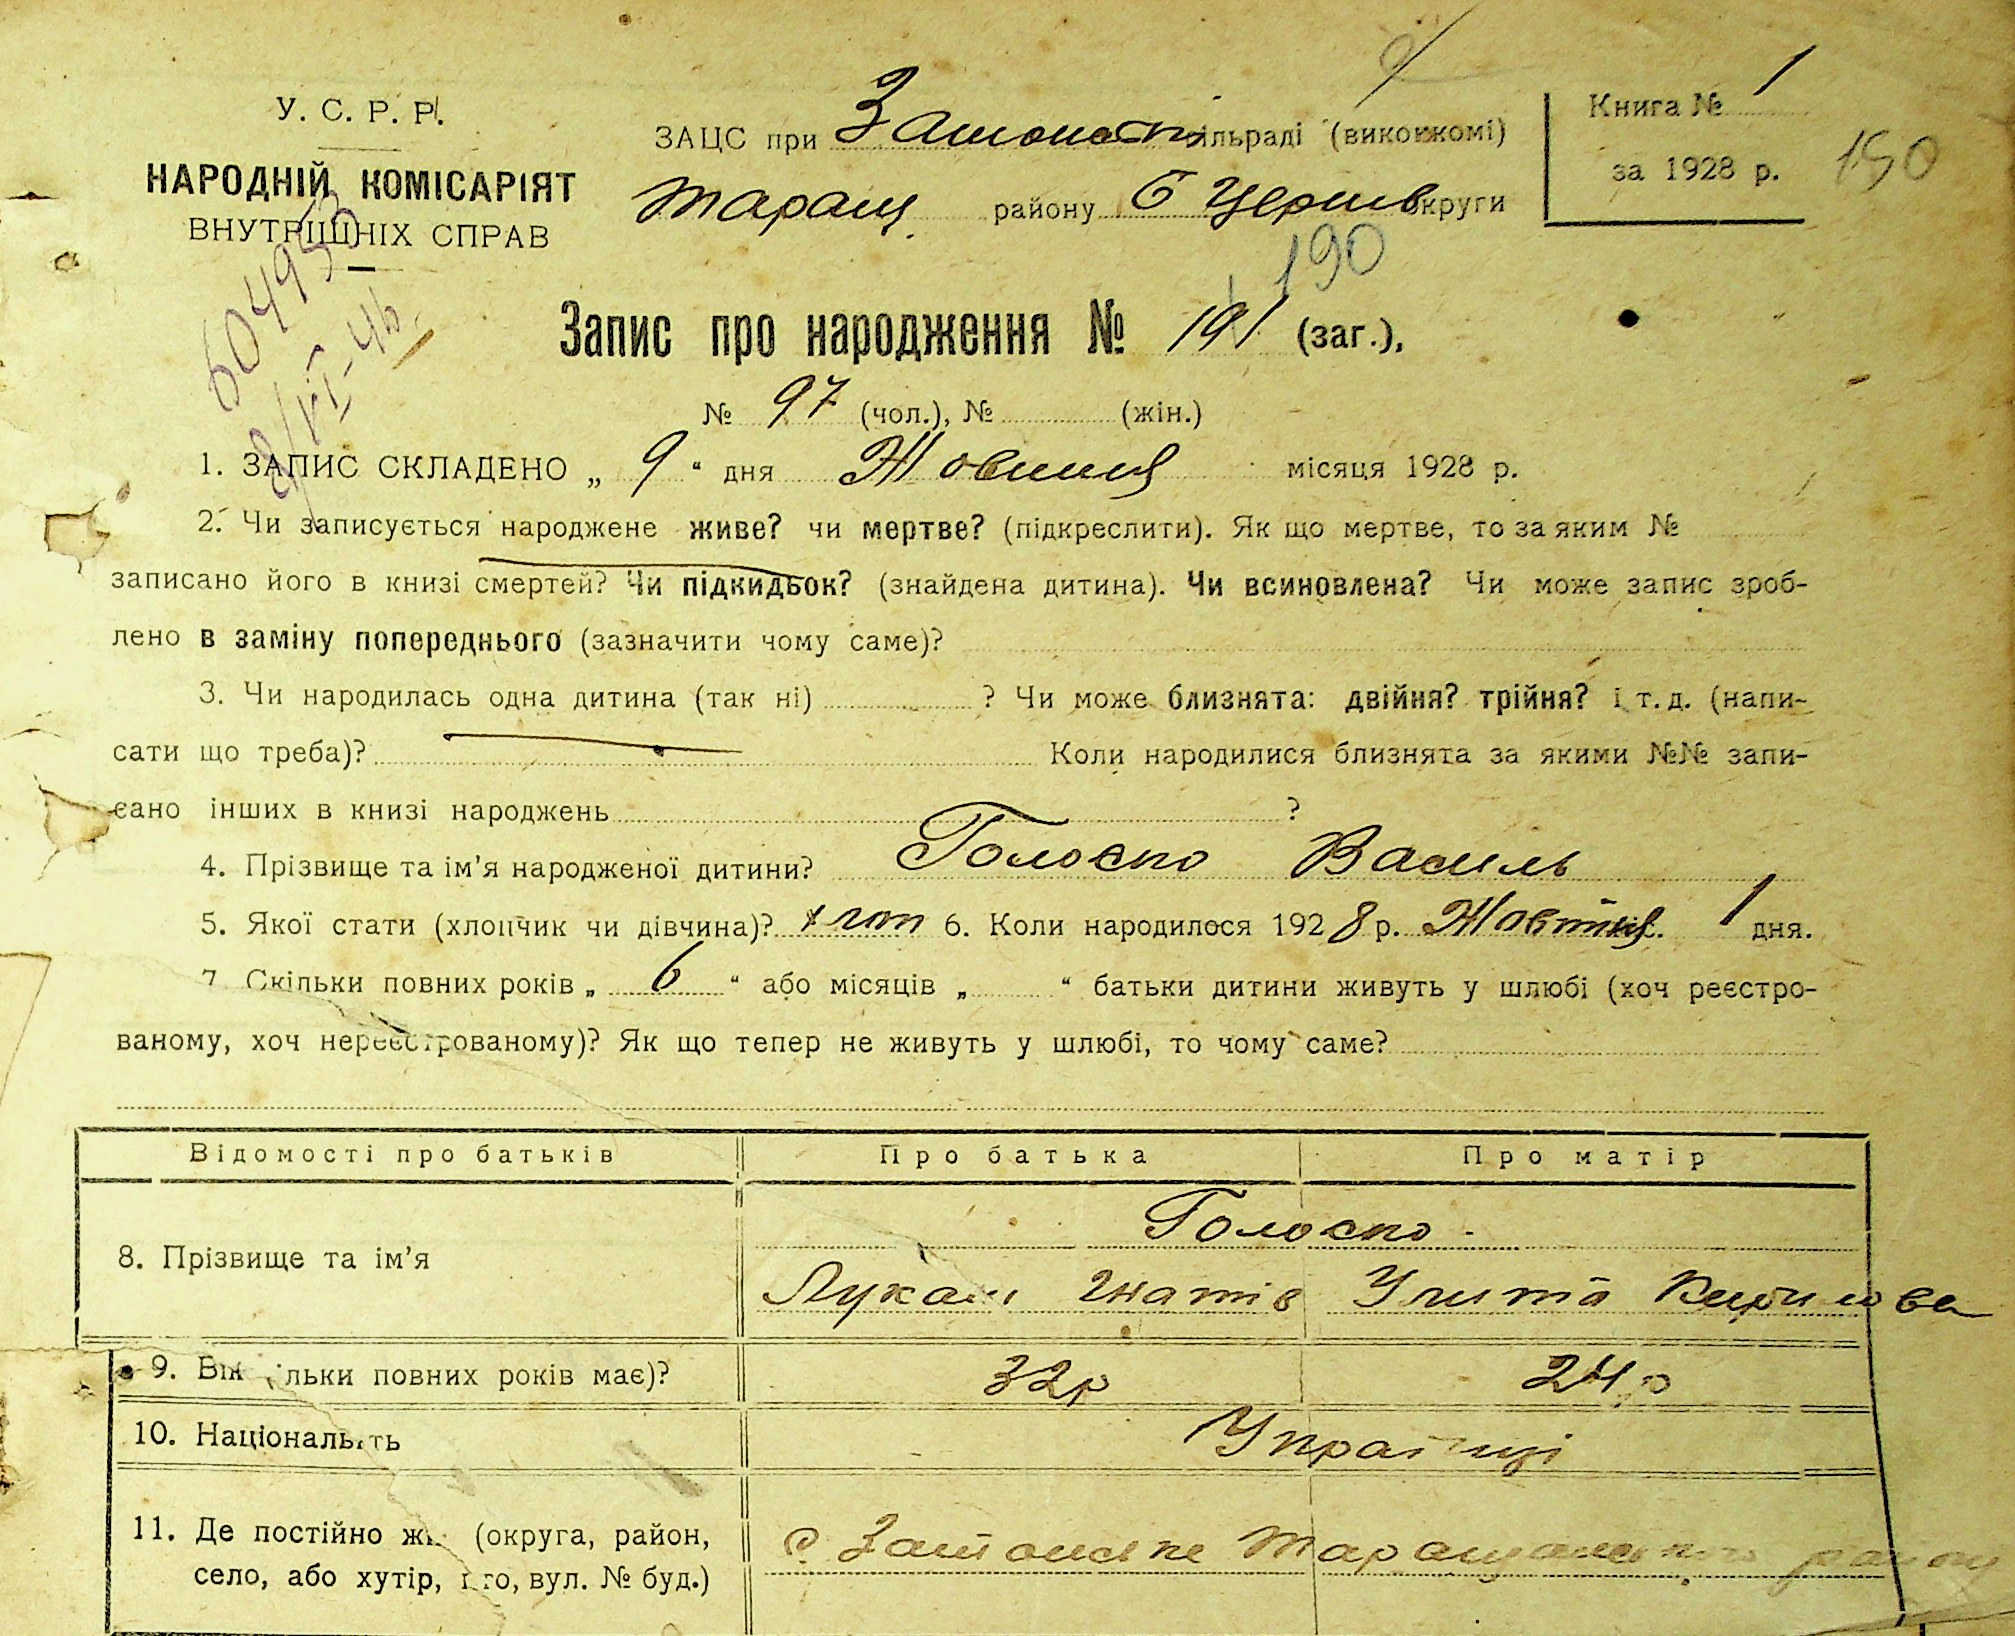 У. С. Р. Р.
НАРОДНІЙ КОМІСАРІЯТ
ВНУТРІШНІХ СПРАВ
ЗАЦС при сільраді (виконкомі)
Таращ. району Б Церків округи
Книга № 1
за 1928 р.
190
190
604953
Запис про народження № 191 (заг.),
№ 97 (чол.), № (жін.)
1. ЗАПИС СКЛАДЕНО „ 9 “ дня Жовтня місяця 1928 р.
2. Чи записується народжене живе? чи мертве? (підкреслити). Як що мертве, то за яким №
записано його в книзі смертей? Чи підкидьок? (знайдена дитина). Чи всиновлена? Чи може запис зроб-
лено в заміну попереднього (зазначити чому саме)?
3. Чи народилась одна дитина (так ні) ? Чи може близнята: двійня? трійня? і т. д. (напи-
сати що треба)? Коли народилися близнята за якими №№ запи-
сано інших в книзі народжень ?
4. Прізвище та ім’я народженої дитини? Голоско Василь
5. Якої стати (хлопчик чи дівчина)? хлоп 6. Коли народилося 1928 р. Жовтня 1 дня.
7. Скільки повних років „ 6 “ або місяців „ “ батьки дитини живуть у шлюбі (хоч реєстро-
ваному, хоч нереєстрованому)? Як що тепер не живуть у шлюбі, то чому саме?
Відомості про батьків Про батька Про матір
8. Прізвище та ім’я Голоско
Лукаш Гнатів Улита Кирилова
9. Вік льки повних років має)? 32р 24р
10. Національсть Українці
11. Де постійно жи (округа, район, с. Таращанського району
село, або хутір, вул. № буд.)